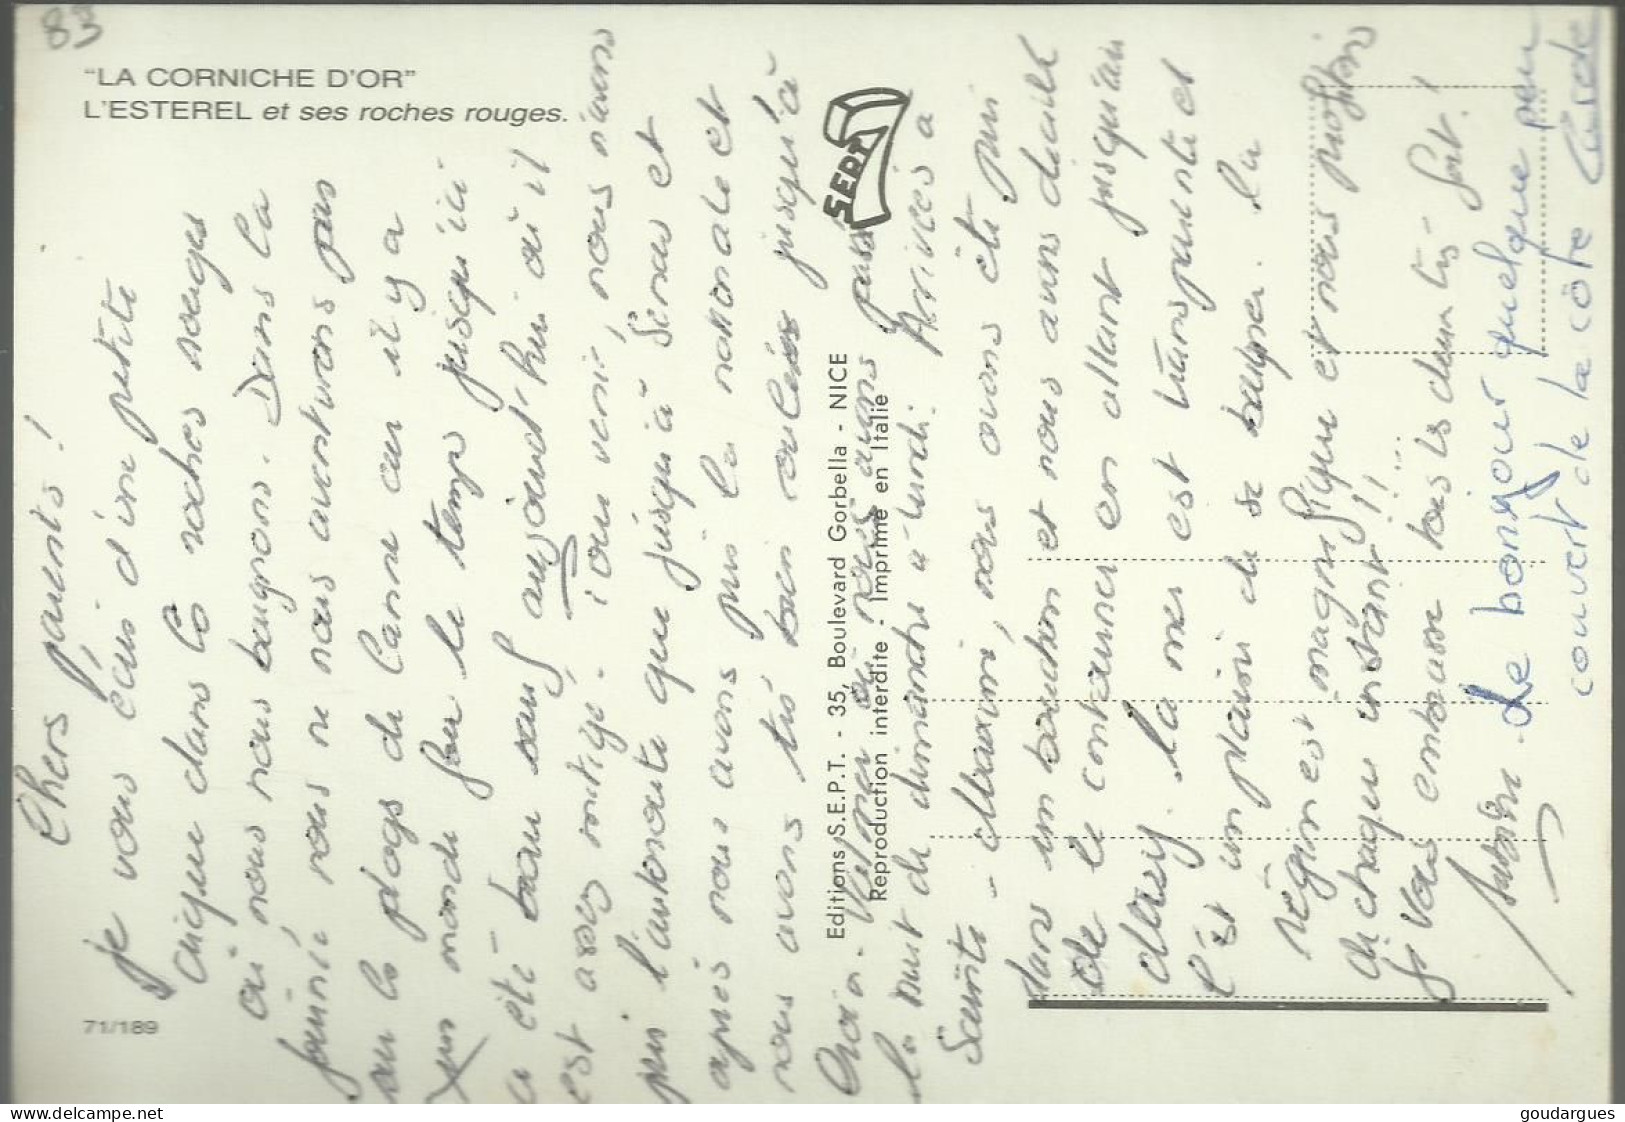 83
"LA CORNICHE D'OR"
L'ESTEREL et ses roches rouges.
Chers parents !
je vous écris d'une petite
crique dans les roches rouges
où nous nous baignons. Dans la
journée nous ne nous aventurons pas
sur les plages de Canne car il y a
un monde fou le temps jusqu'ici
a été beau sauf aujourd'hui où il
est assez mitigé. Pour venir, nous n'avons
pris l'autoroute que jusqu'à Senas et
après nous avons pris la nationale et
nous avons très bien roulés jusqu'à
où nous avons passé
la nuit de dimanche à lundi. Arrivés à
Sainte-Maxime, nous avons été pris
dans un bouchon et nous avons décidé
de le contourner en allant jusqu'au
. La mer est transparente et
c'est un plaisir de se baigner. La
région est magnifique et nous profitons
de chaque instant !!...
je vous embrasse tous les deux très fort !
Le bonjour quelque peu
couvert de la côte
SEPT
Editions S.E.P.T. - 35, Boulevard Gorbella - NICE
Reproduction interdite - Imprimé en Italie
71/189
delcampe.net
goudargues